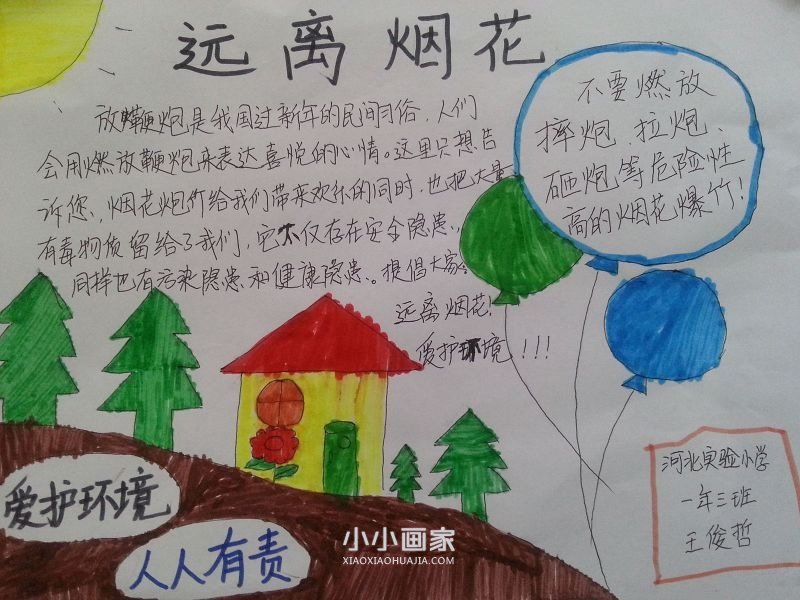 远离烟花
放鞭炮是我国过新年的民间习俗，人们
会用燃放鞭炮来表达喜悦的心情。这里只想告
诉您，烟花炮竹给我们带来欢怀的同时，也把大量
有毒物质留给了我们，它不仅存在安全隐患，
同样也有污染隐患和健康隐患。提倡大家：
远离烟花！
爱护环境！！！
不要燃放
摔炮、拉炮、
砸炮等危险性
高的烟花爆竹！
河北实验小学
一年三班
王俊哲
爱护环境
人人有责
小小画家
XIAOXIAOHUAJIA.COM